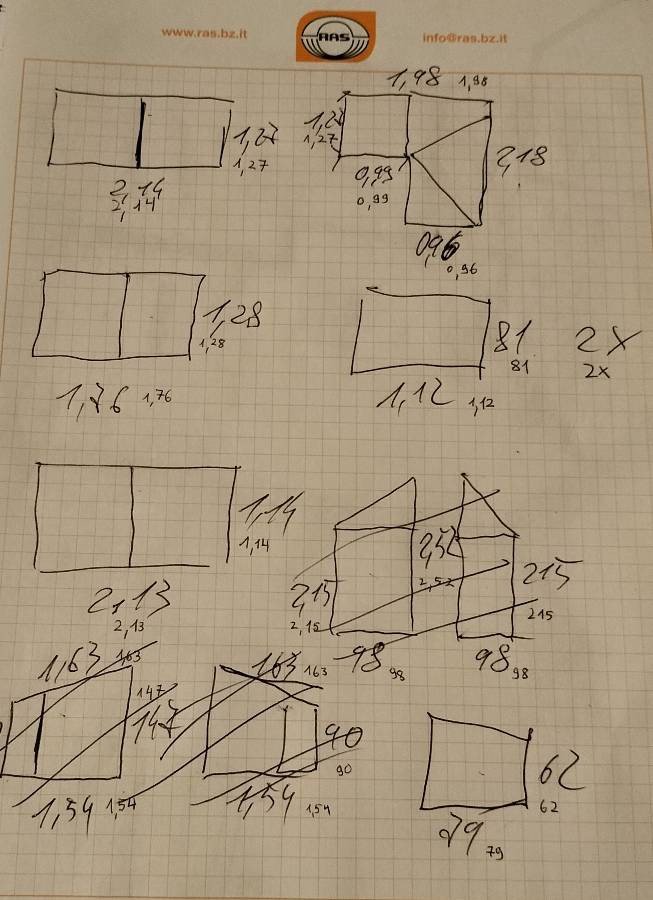 www.ras.bz.it
RAS
info@ras.bz.it
1,27
1,27
2,14
2,14
1,98 1,98
1,27
1,27
0,99
0,99
2,18
0,96
0,96
1,28
1,28
1,76 1,76
81
81
2x
2x
1,12 1,12
1,14
1,14
2,13
2,13
2,15
2,15
2,52
2,52
98 98
215
215
98 98
1,63 1,63
147
147
1,54 1,54
163 163
90
90
1,54 1,54
62
62
79 79